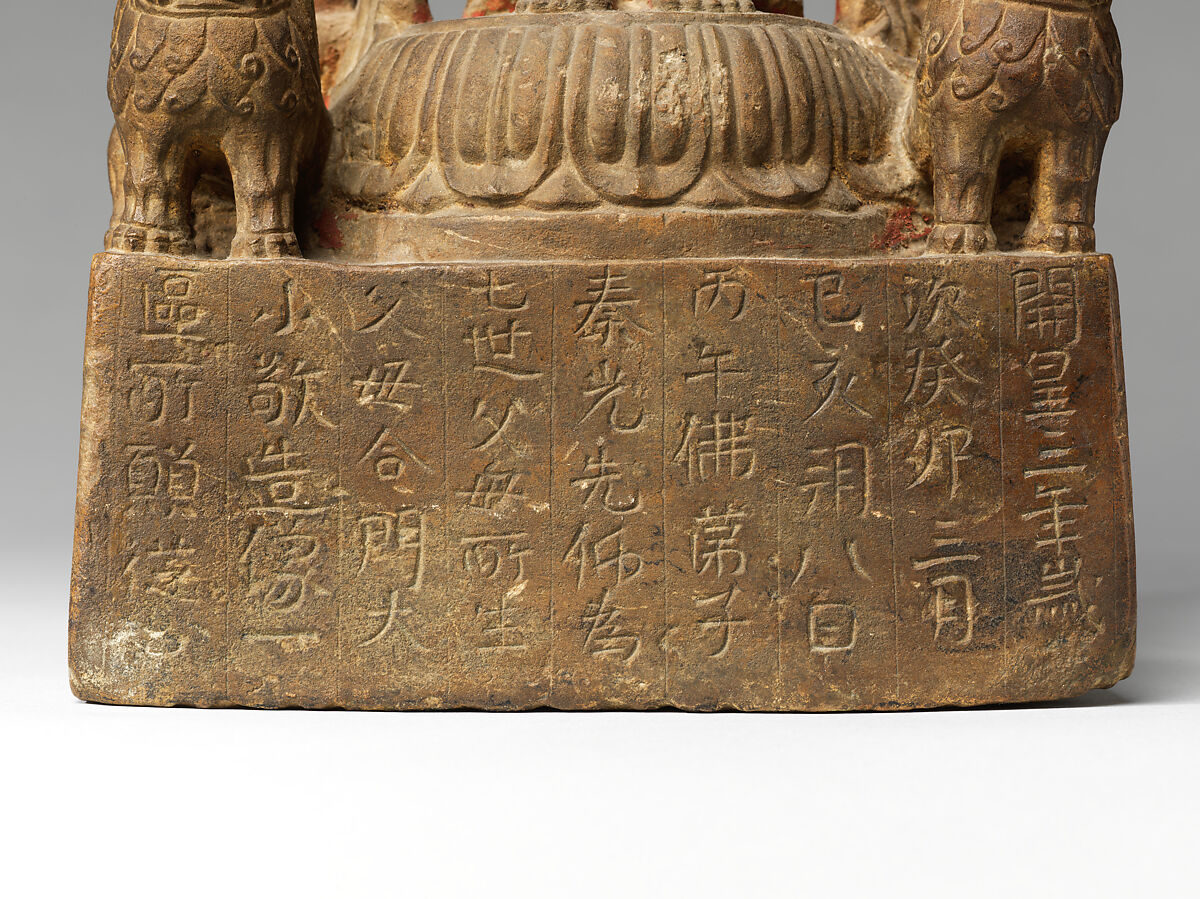 開皇三年歲
次癸卯三月
己亥朔八日
丙午佛弟子
秦光先仰為
七世父母所生
父母合門大
小敬造像一
區所願從